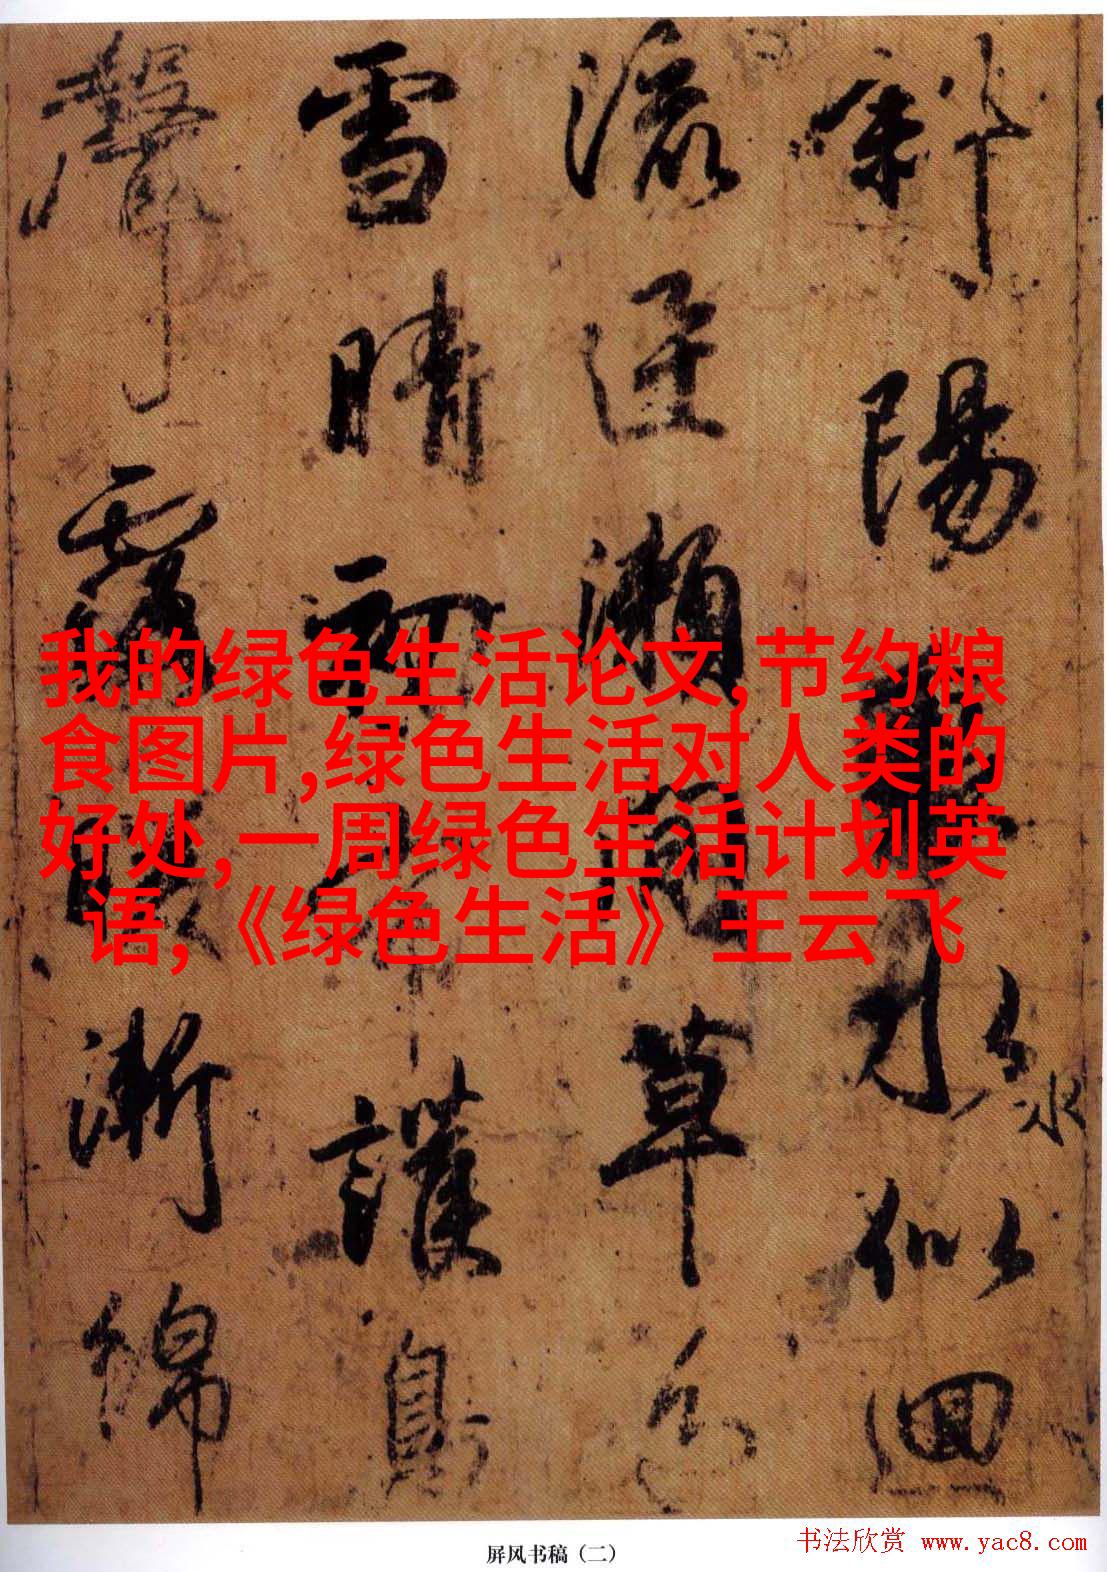 斜陽水似洄
瀬草
雪晴初護
聲霧漸綿
我的绿色生活论文,节约粮
食图片,绿色生活对人类的
好处,一周绿色生活计划英
语,《绿色生活》 王云飞
屏风书稿（二）
书法欣赏 www.yac8.com